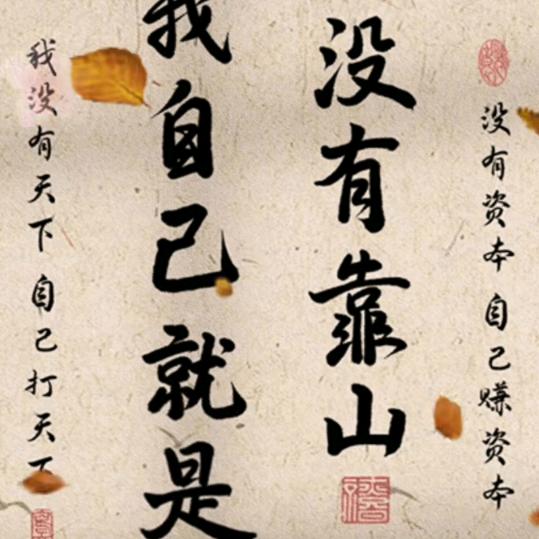 没有资本 自己赚资本
没有靠山
我自己就是
我没有天下 自己打天下